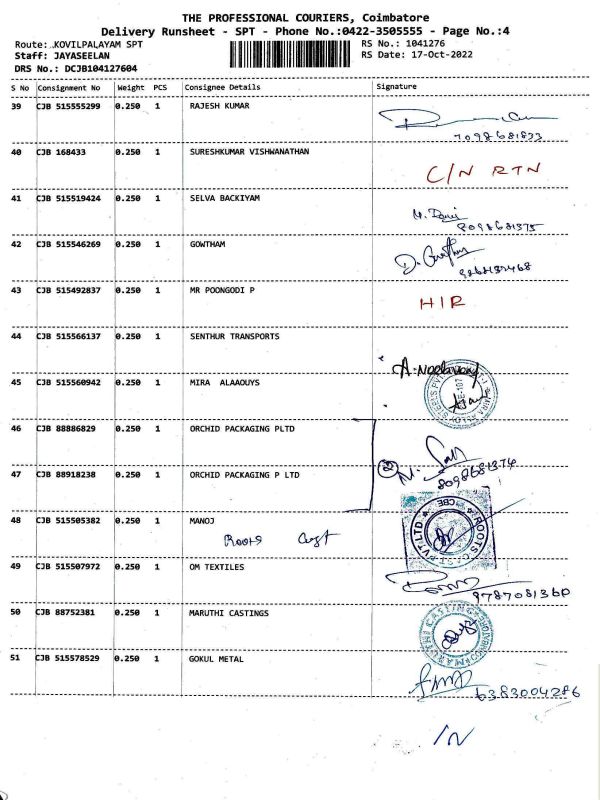 THE PROFESSIONAL COURIERS, Coimbatore
Delivery Runsheet - SPT - Phone No.:0422-3505555 - Page No.:4
Route: KOVILPALAYAM SPT
Staff: JAYASEELAN
DRS No.: DCJB104127604
RS No.: 1041276
RS Date: 17-Oct-2022
S No Consignment No Weight PCS Consignee Details Signature
39 CJB 515555299 0.250 1 RAJESH KUMAR
7098681833
40 CJB 168433 0.250 1 SURESHKUMAR VISHWANATHAN
C/N RTN
41 CJB 515519424 0.250 1 SELVA BACKIYAM
8098681375
42 CJB 515546269 0.250 1 GOWTHAM
43 CJB 515492837 0.250 1 MR POONGODI P
HIR
44 CJB 515566137 0.250 1 SENTHUR TRANSPORTS
45 CJB 515560942 0.250 1 MIRA ALAAOUYS
46 CJB 88886829 0.250 1 ORCHID PACKAGING PLTD
47 CJB 88918238 0.250 1 ORCHID PACKAGING P LTD
8098681374
48 CJB 515505382 0.250 1 MANOJ
Roots Cast
ROOTS CAST PVT LTD
CBE
49 CJB 515507972 0.250 1 OM TEXTILES
9787081360
50 CJB 88752381 0.250 1 MARUTHI CASTINGS
MARUTHI CASTINGS
51 CJB 515578529 0.250 1 GOKUL METAL
6383004286